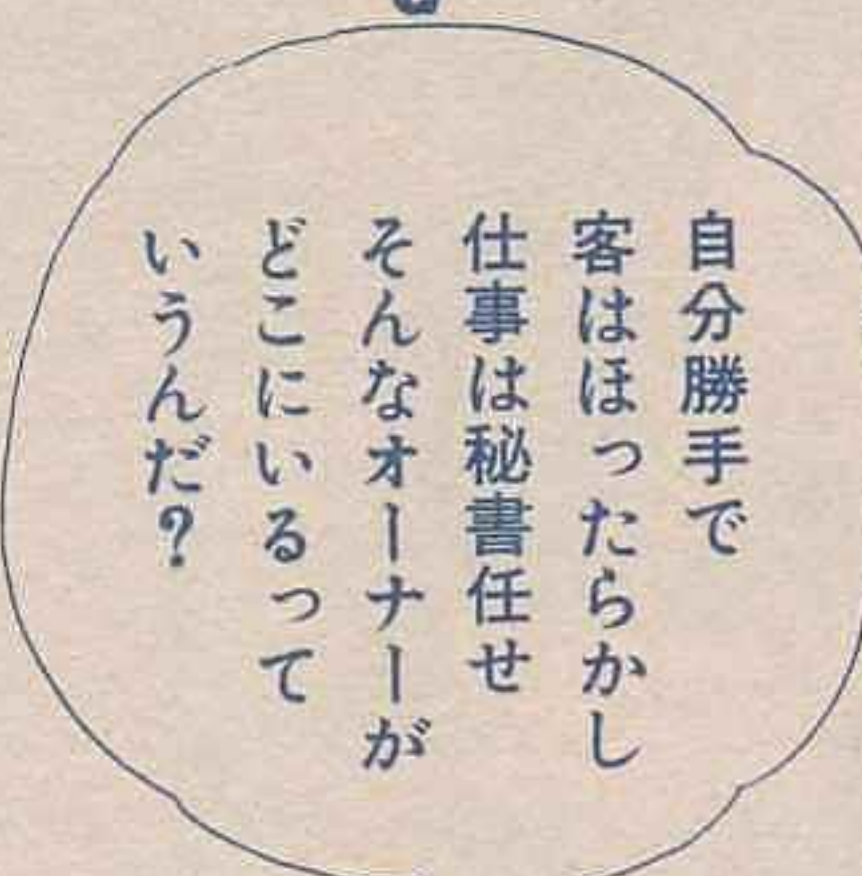 自分勝手で
客はほったらかし
仕事は秘書任せ
そんなオーナーが
どこにいるって
いうんだ?